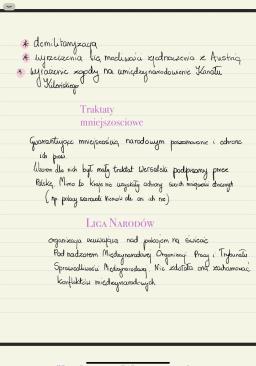 * demilitaryzacja
* wyrzeczenia się możliwości zjednoczenia z Austrią
* wyrażenie zgody na umiędzynarodowienie Kanału
Kilońskiego
Traktaty
mniejszosciowe
Gwarantujące mniejszością narodowym poszanowanie i ochrone
ich praw.
Wzorem dla nich był mały traktat wersalski podpisany przez
Polskę. Mimo to kraje nie uzyskały ochrony swoich mniejszości
(np polacy
LIGA NARODÓW
organizacja czuwająca nad pokojem na świecie
Pod nadzorem Międzynarodowej Organizacji Pracy i Trybunału
Sprawiedliwości Międzynarodowej. Nie zdołała ona zahamować
konfliktów międzynarodowych